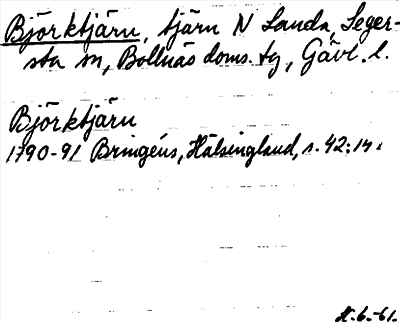 Björktjärn, tjärn N Landa, Seger-
sta sn, Bollnäs doms. tg, Gävl. l.
Björktjärn
1790-91 Bringéus, Hälsingland, s. 42:14.
H.6.-61.